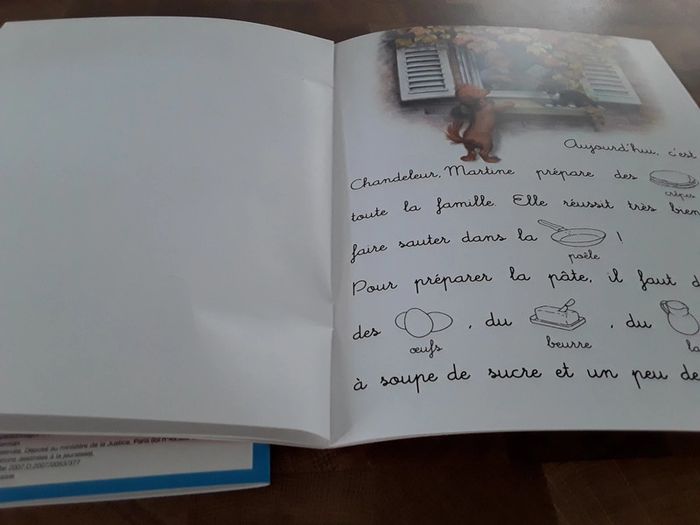 Aujourd'hui, c'est
Chandeleur, Martine prépare des
crêpes
toute la famille. Elle réussit très bien
faire sauter dans la !
poêle
Pour préparer la pâte, il faut d
des , du , du
œufs beurre la
à soupe de sucre et un peu de
servés. Déposé au ministère de la Justice, Paris (loi n°
ations destinées à la jeunesse).
2007.D.2007/0053/377